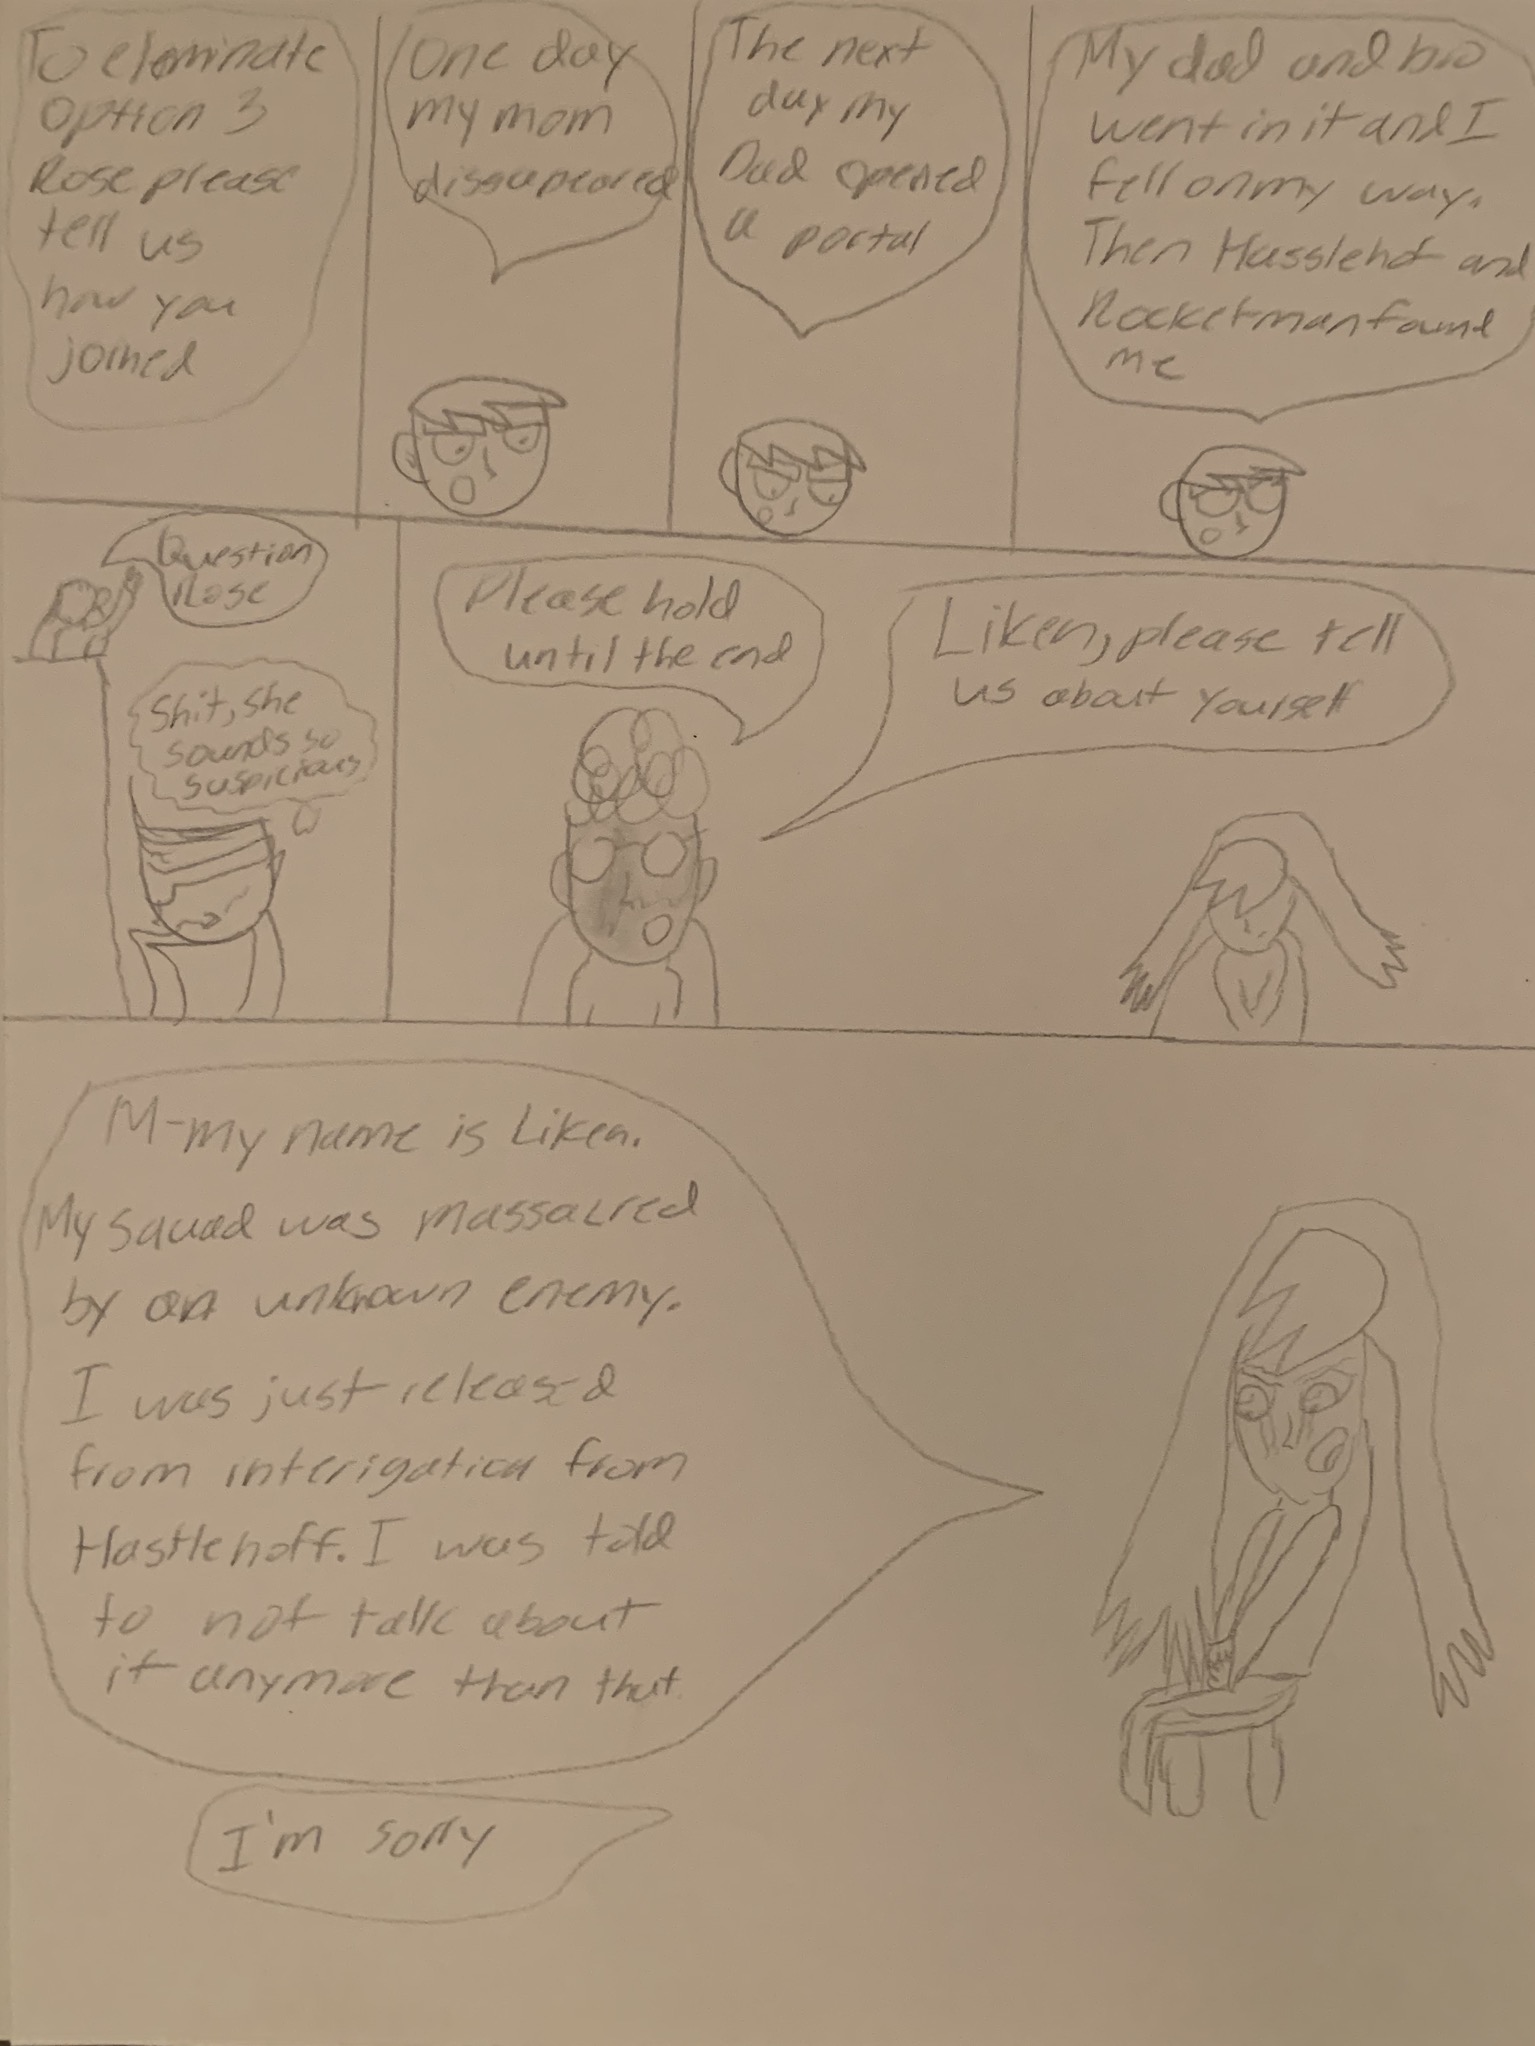 To elominate
option 3
Rose please
tell us
how you
joined
One day
my mom
dissapeared
The next
day my
Dad opened
a portal
My dad and bro
went in it and I
fell on my way.
Then Hasslehof and
Rocketman found
me
Question
Rose
Shit, she
sounds so
suspicious
Please hold
until the end
Liken, please tell
us about yourself
M-my name is Liken.
My squad was massacred
by an unknown enemy.
I was just released
from interigation from
Hastlehoff. I was told
to not talk about
it anymore than that.
I'm sorry